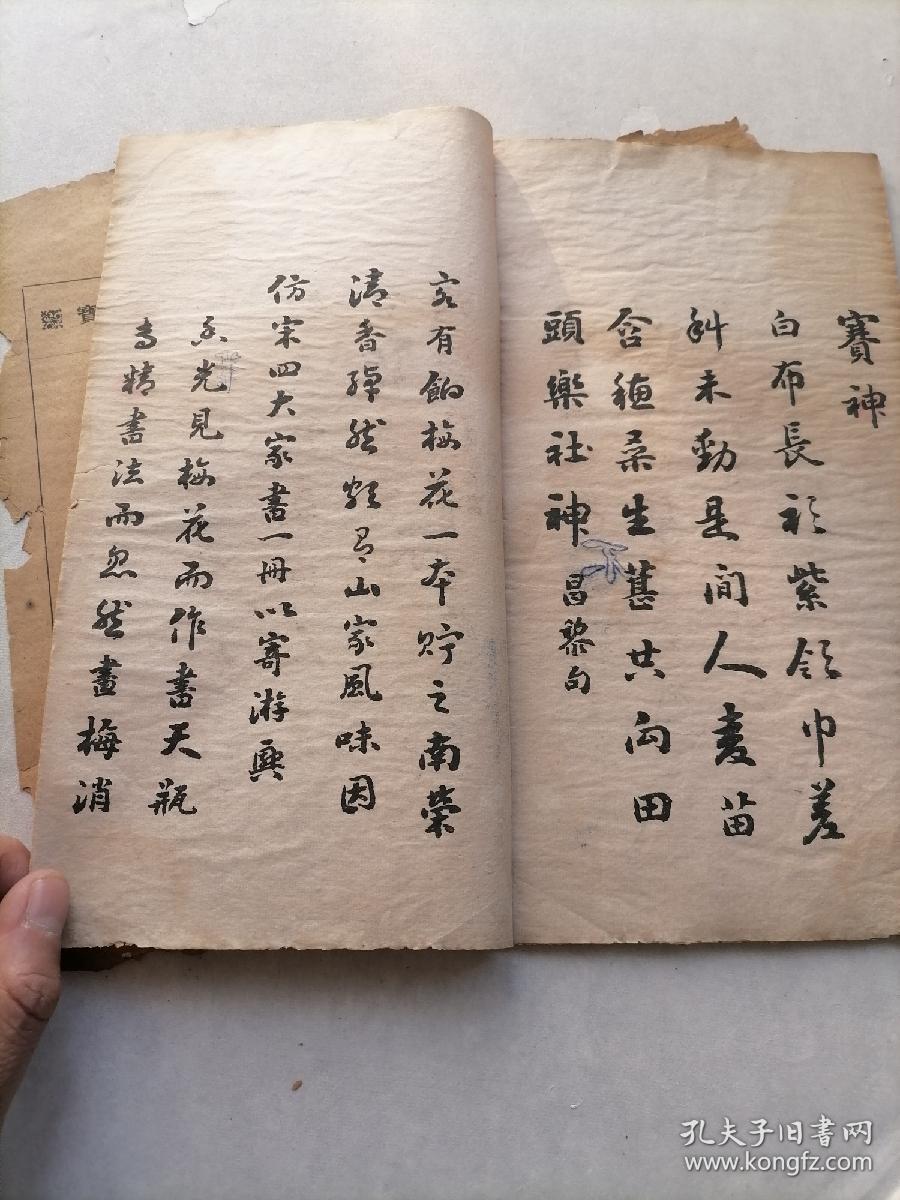 賽神
白布長衫紫領巾差
科未動是閒人麦苗
含穗桑生葚共向田
頭樂社神 昌黎句
客有餉梅花一本貯之南榮
清香綽然頗有山家風味因
仿宋四大家書一冊以寄游興
香光見梅花而作書天瓶
專精書法而忽然畫梅消
寶
孔夫子旧书网
www.kongfz.com